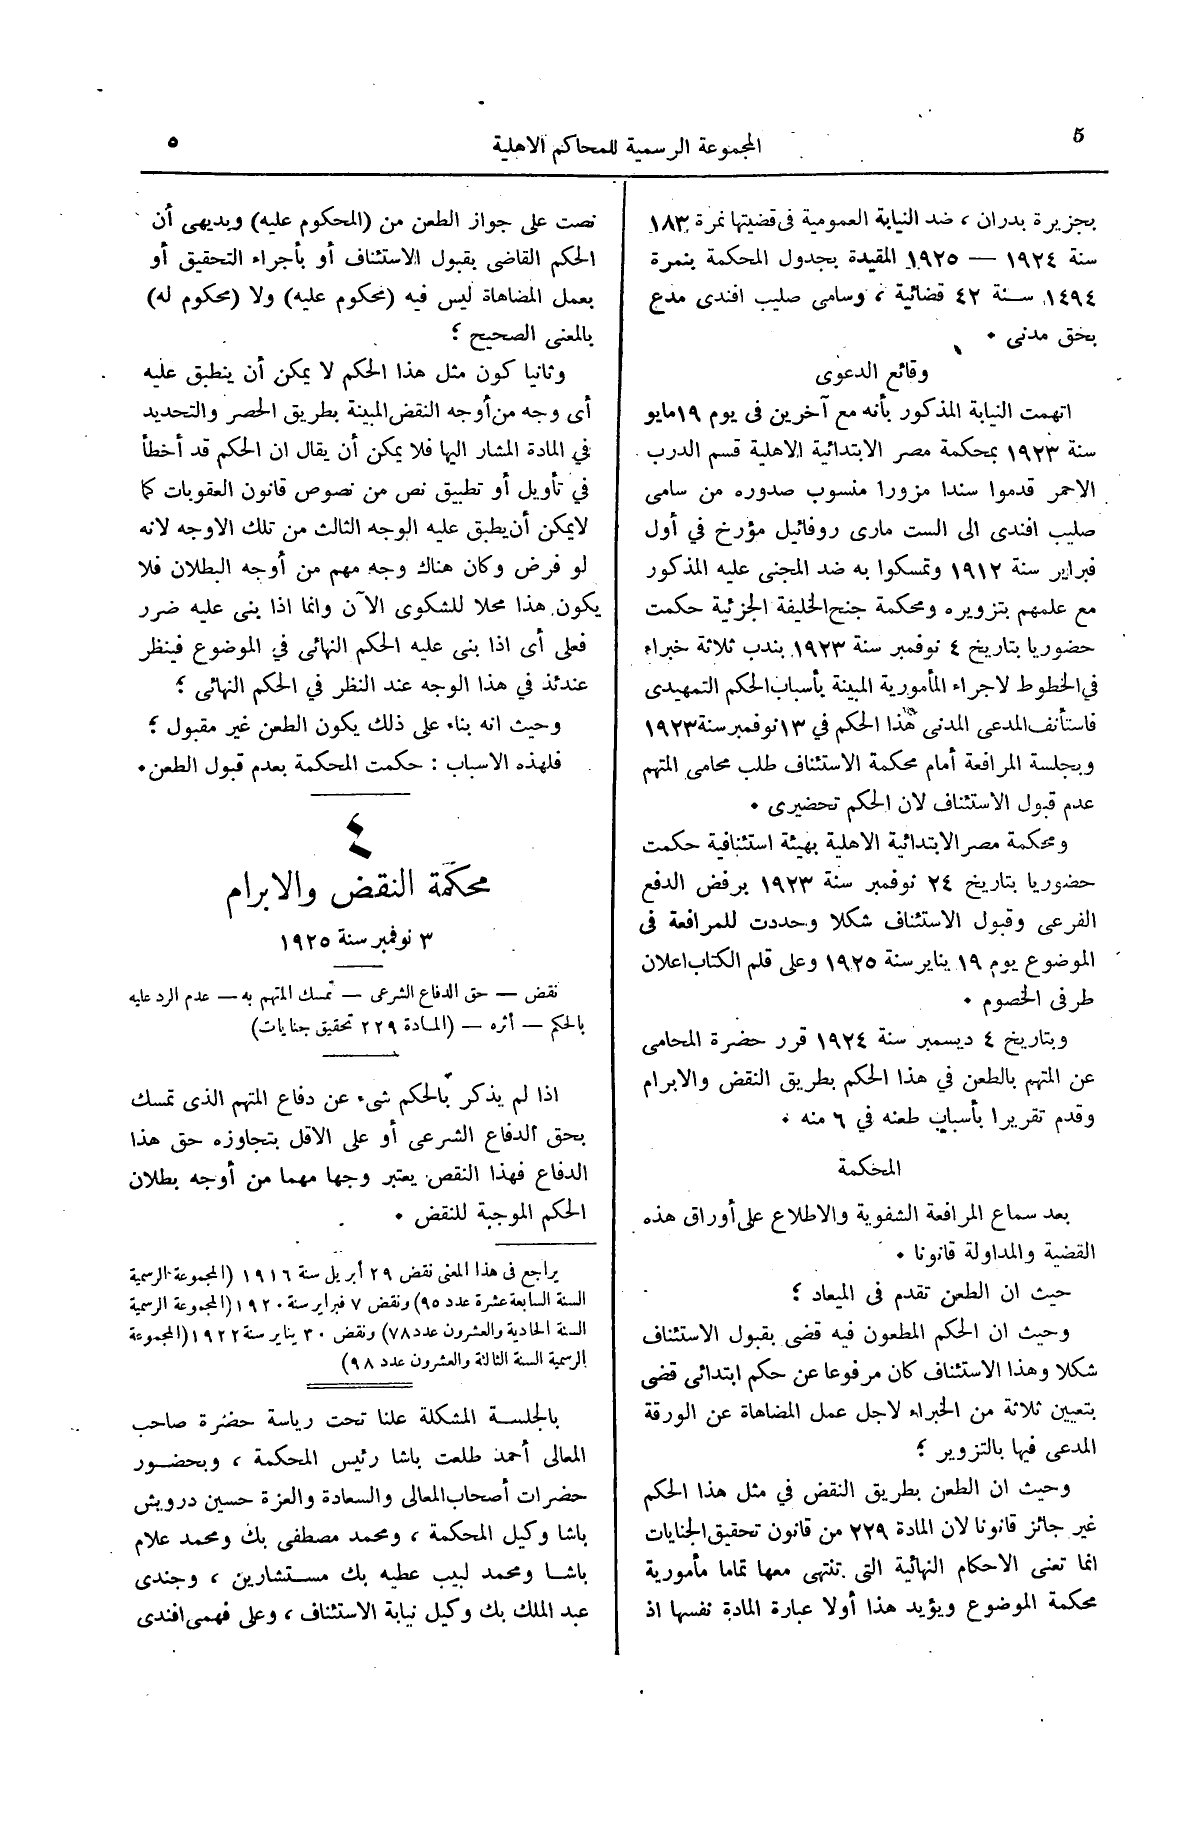 5
المجموعة الرسمية للمحاكم الاهلية
٥
بجزيرة بدران ، ضد النيابة العمومية فى قضيتها نمرة ١٨٣
سنة ١٩٢٤ — ١٩٢٥ المقيدة بجدول المحكمة بنمرة
١٤٩٤ سنة ٤٢ قضائية ، وسامى صليب افندى مدع
بحق مدنى ٠
وقائع الدعوى
اتهمت النيابة المذكور بأنه مع آخرين فى يوم ١٩ مايو
سنة ١٩٢٣ بمحكمة مصر الابتدائية الاهلية قسم الدرب
الاحمر قدموا سندا مزورا منسوب صدوره من سامى
صليب افندى الى الست مارى روفائيل مؤرخ في أول
فبراير سنة ١٩١٢ وتمسكوا به ضد المجنى عليه المذكور
مع علمهم بتزويره ومحكمة جنح الخليفة الجزئية حكمت
حضوريا بتاريخ ٤ نوفمبر سنة ١٩٢٣ بندب ثلاثة خبراء
في الخطوط لاجراء المأمورية المبينة بأسباب الحكم التمهيدى
فاستأنف المدعى المدنى هذا الحكم في ١٣ نوفمبر سنة ١٩٢٣
وبجلسة المرافعة أمام محكمة الاستئناف طلب محامى المتهم
عدم قبول الاستئناف لان الحكم تحضيرى ٠
ومحكمة مصر الابتدائية الاهلية بهيئة استئنافية حكمت
حضوريا بتاريخ ٢٤ نوفمبر سنة ١٩٢٣ برفض الدفع
الفرعى وقبول الاستئناف شكلا وحددت للمرافعة فى
الموضوع يوم ١٩ يناير سنة ١٩٢٥ وعلى قلم الكتاب اعلان
طرفى الخصوم ٠
وبتاريخ ٤ ديسمبر سنة ١٩٢٤ قرر حضرة المحامى
عن المتهم بالطعن في هذا الحكم بطريق النقض والابرام
وقدم تقريرا بأسباب طعنه في ٦ منه ٠
المحكمة
بعد سماع المرافعة الشفوية والاطلاع على أوراق هذه
القضية والمداولة قانونا ٠
حيث ان الطعن تقدم فى الميعاد ؛
وحيث ان الحكم المطعون فيه قضى بقبول الاستئناف
شكلا وهذا الاستئناف كان مرفوعا عن حكم ابتدائى قضى
بتعيين ثلاثة من الخبراء لاجل عمل المضاهاة عن الورقة
المدعى فيها بالتزوير ؛
وحيث ان الطعن بطريق النقض في مثل هذا الحكم
غير جائز قانونا لان المادة ٢٢٩ من قانون تحقيق الجنايات
انما تعنى الاحكام النهائية التى تنتهى معها تماما مأمورية
محكمة الموضوع ويؤيد هذا أولا عبارة المادة نفسها اذ
نصت على جواز الطعن من (المحكوم عليه) وبديهى أن
الحكم القاضى بقبول الاستئناف أو بأجراء التحقيق أو
بعمل المضاهاة ليس فيه (محكوم عليه) ولا (محكوم له)
بالمعنى الصحيح ؛
وثانيا كون مثل هذا الحكم لا يمكن أن ينطبق عليه
أى وجه من أوجه النقض المبينة بطريق الحصر والتحديد
في المادة المشار اليها فلا يمكن أن يقال ان الحكم قد أخطأ
في تأويل أو تطبيق نص من نصوص قانون العقوبات كما
لايمكن أن يطبق عليه الوجه الثالث من تلك الاوجه لانه
لو فرض وكان هناك وجه مهم من أوجه البطلان فلا
يكون هذا محلا للشكوى الآن وانما اذا بنى عليه ضرر
فعلى أى اذا بنى عليه الحكم النهائى في الموضوع فينظر
عندئذ في هذا الوجه عند النظر في الحكم النهائى ؛
وحيث انه بناء على ذلك يكون الطعن غير مقبول ؛
فلهذه الاسباب : حكمت المحكمة بعدم قبول الطعن ٠
٤
محكمة النقض والابرام
٣ نوفمبر سنة ١٩٢٥
نقض — حق الدفاع الشرعى — تمسك المتهم به — عدم الرد عليه
بالحكم — أثره — (المادة ٢٢٩ تحقيق جنايات)
اذا لم يذكر بالحكم شىء عن دفاع المتهم الذى تمسك
بحق الدفاع الشرعى أو على الاقل بتجاوزه حق هذا
الدفاع فهذا النقص يعتبر وجها مهما من أوجه بطلان
الحكم الموجبة للنقض ٠
يراجع فى هذا المعنى نقض ٢٩ أبريل سنة ١٩١٦ (المجموعة الرسمية
السنة السابعة عشرة عدد ٩٥) ونقض ٧ فبراير سنة ١٩٢٠ (المجموعة الرسمية
السنة الحادية والعشرون عدد ٧٨) ونقض ٣٠ يناير سنة ١٩٢٢ (المجموعة
الرسمية السنة الثالثة والعشرون عدد ٩٨)
بالجلسة المشكلة علنا تحت رياسة حضرة صاحب
المعالى أحمد طلعت باشا رئيس المحكمة ، وبحضور
حضرات أصحاب المعالى والسعادة والعزة حسين درويش
باشا وكيل المحكمة ، ومحمد مصطفى بك ومحمد علام
باشا ومحمد لبيب عطيه بك مستشارين ، وجندى
عبد الملك بك وكيل نيابة الاستئناف ، وعلى فهمى افندى